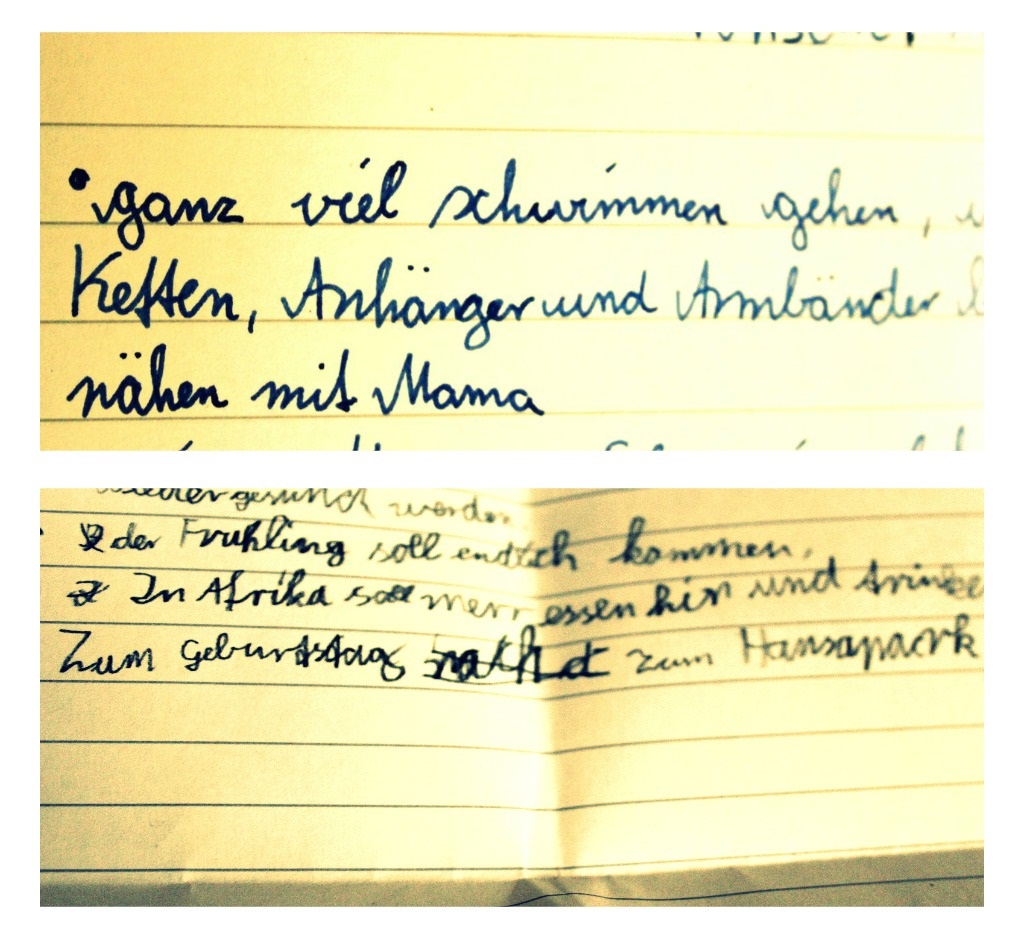 ganz viel schwimmen gehen,
Ketten, Anhänger und Armbänder
nähen mit Mama
wieder gesund werden
der Fruhling soll endlich kommen.
In Afrika soll merr essen hin und trinke
Zum Geburtstag zum Hansapark